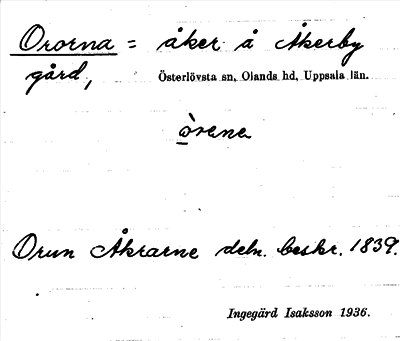 Ororna = åker å Åkerby
gård, Österlövsta sn, Olands hd, Uppsala län.
òrena
Orun Åkrarne deln. beskr. 1839.
Ingegärd Isaksson 1936.